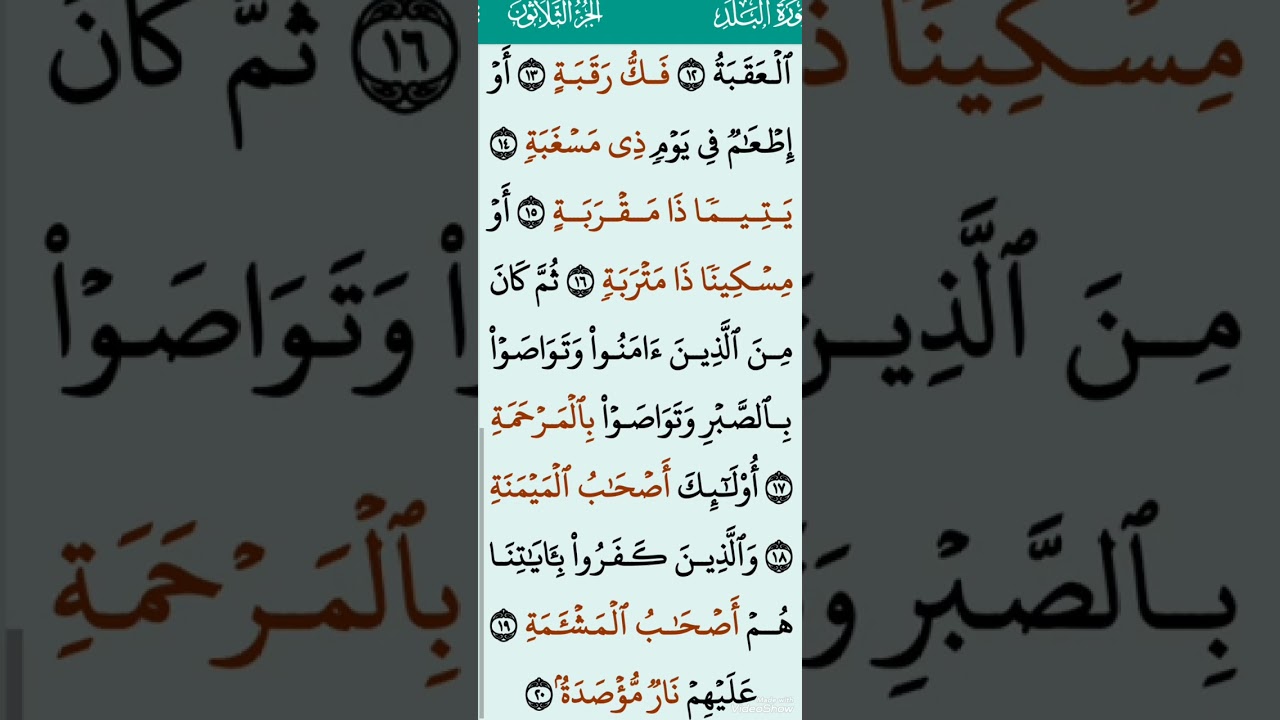 سورة البلد الجزء الثلاثون
ٱلْعَقَبَةُ ١٢ فَكُّ رَقَبَةٍ ١٣ أَوْ
إِطْعَٰمٌ فِى يَوْمٍ ذِى مَسْغَبَةٍ ١٤
يَتِيمًا ذَا مَقْرَبَةٍ ١٥ أَوْ
مِسْكِينًا ذَا مَتْرَبَةٍ ١٦ ثُمَّ كَانَ
مِنَ ٱلَّذِينَ ءَامَنُوا۟ وَتَوَاصَوْا۟
بِٱلصَّبْرِ وَتَوَاصَوْا۟ بِٱلْمَرْحَمَةِ
١٧ أُو۟لَٰٓئِكَ أَصْحَٰبُ ٱلْمَيْمَنَةِ
١٨ وَٱلَّذِينَ كَفَرُوا۟ بِـَٔايَٰتِنَا
هُمْ أَصْحَٰبُ ٱلْمَشْـَٔمَةِ ١٩
عَلَيْهِمْ نَارٌ مُّؤْصَدَةٌۢ ٢٠
Made with
VideoShow